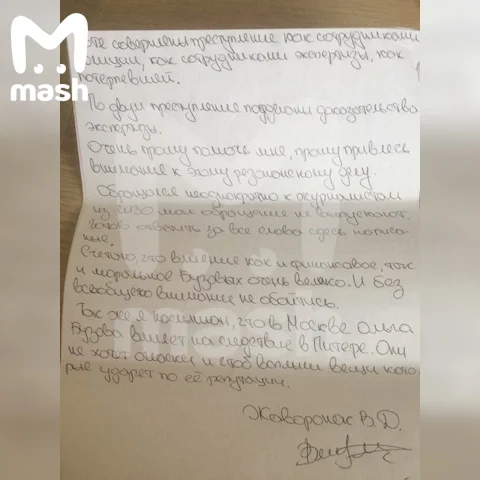 mash
совершены преступление как сотрудниками
полиции, как сотрудниками экспертизы, как
потерпевшей.
По двум преступление подделаны доказательства
экспертизы.
Очень прошу помочь мне, прошу привлесь
внимание к этому резонансному делу.
Обращался неоднократно к журналистом
из СИЗО мои обращение не выпускают.
Готов ответить за все слова здесь написа-
ные.
Считаю, что влияние как и финансовое, так
и моральное Бузовых очень велико. И без
всеобщего внимание не обойтись.
Так же я , что в Москве Ольга
Бузова влияет на следствие в Питере. Они
не хотят огласки и чтоб всплыли вещи кото
рые ударят по её репутации.
Жаворонок В.Д.